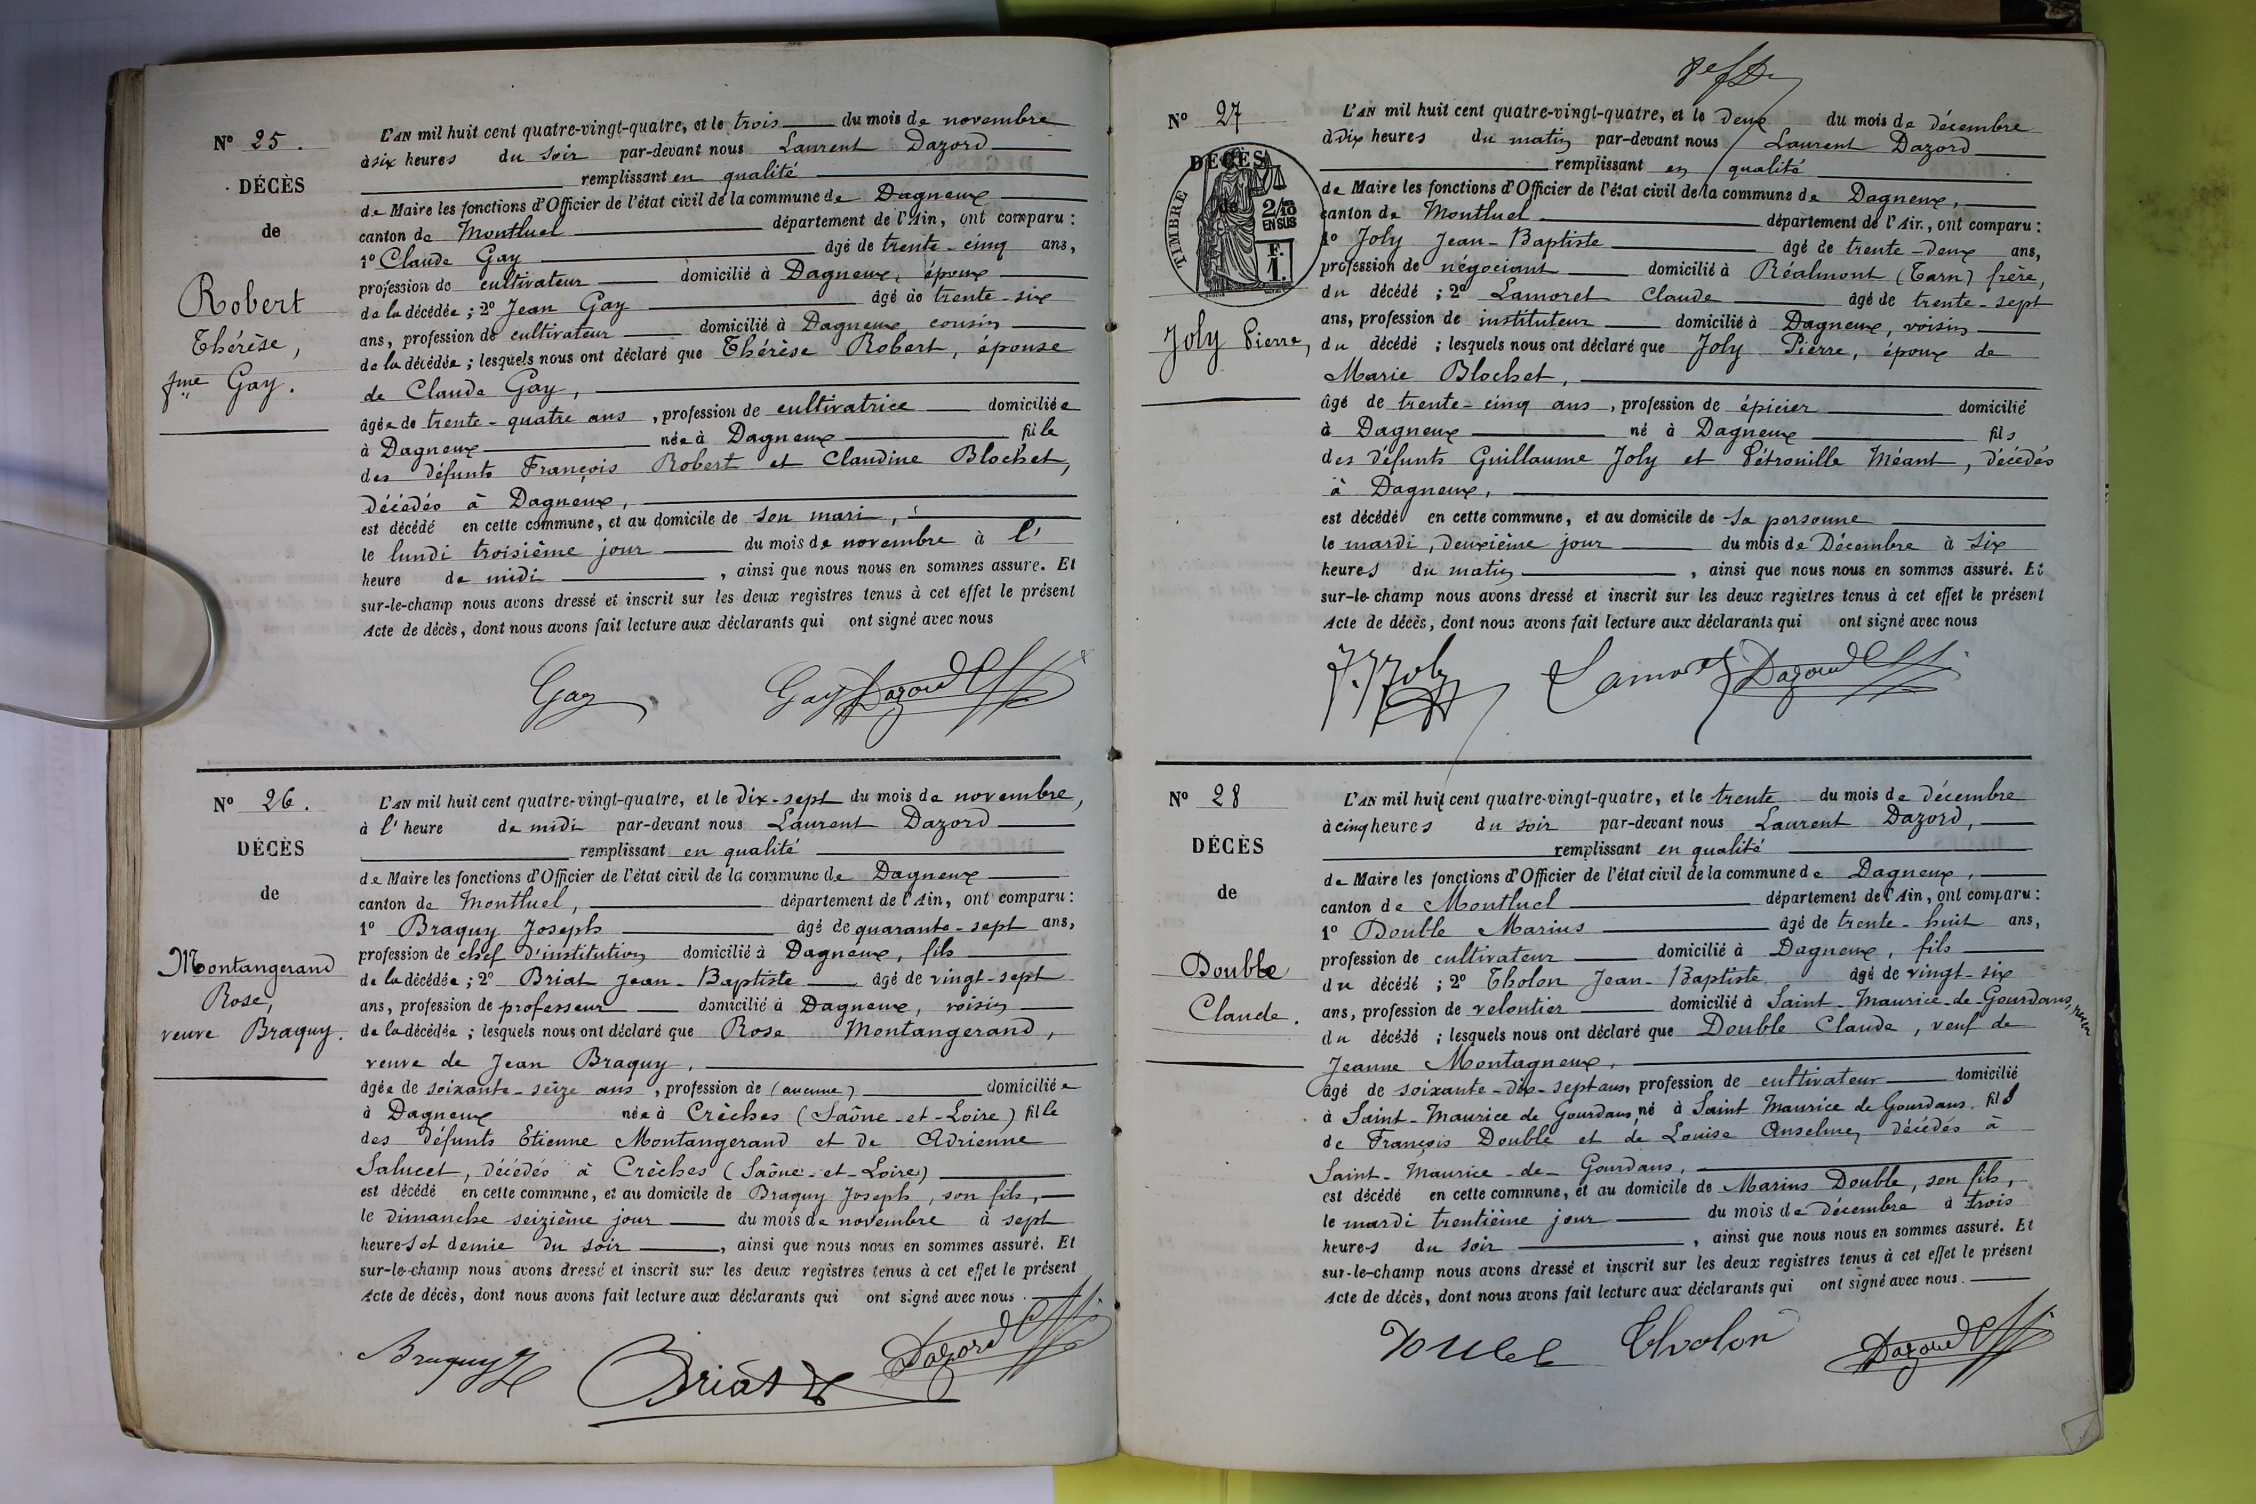 Nº 25.
DÉCÈS
de
Robert
Thérèse,
fme Gay.
L'AN mil huit cent quatre-vingt-quatre, et le trois du mois de novembre
à six heures du soir par-devant nous Laurent Dazord
remplissant en qualité
de Maire les fonctions d'Officier de l'état civil de la commune de Dagneux
canton de Montluel département de l'Ain, ont comparu :
1º Claude Gay âgé de trente-cinq ans,
profession de cultivateur domicilié à Dagneux, époux
de la décédée ; 2º Jean Gay âgé de trente-six
ans, profession de cultivateur domicilié à Dagneux, cousin
de la décédée ; lesquels nous ont déclaré que Thérèse Robert, épouse
de Claude Gay,
âgée de trente-quatre ans, profession de cultivatrice domiciliée
à Dagneux née à Dagneux fille
des défunts François Robert et Claudine Blochet,
décédés à Dagneux,
est décédé en cette commune, et au domicile de son mari,
le lundi troisième jour du mois de novembre à l'
heure de midi, ainsi que nous nous en sommes assuré. Et
sur-le-champ nous avons dressé et inscrit sur les deux registres tenus à cet effet le présent
Acte de décès, dont nous avons fait lecture aux déclarants qui ont signé avec nous
Gay Gay Dazord
Nº 26.
DÉCÈS
de
Montangerand
Rose,
veuve Braquy.
L'AN mil huit cent quatre-vingt-quatre, et le dix-sept du mois de novembre,
à l'heure de midi par-devant nous Laurent Dazord
remplissant en qualité
de Maire les fonctions d'Officier de l'état civil de la commune de Dagneux
canton de Montluel, département de l'Ain, ont comparu :
1º Braquy Joseph âgé de quarante-sept ans,
profession de chef d'institution domicilié à Dagneux, fils
de la décédée ; 2º Briat Jean-Baptiste âgé de vingt-sept
ans, profession de professeur domicilié à Dagneux, voisin
de la décédée ; lesquels nous ont déclaré que Rose Montangerand,
veuve de Jean Braquy,
âgée de soixante-seize ans, profession de (aucune) domiciliée
à Dagneux née à Crèches (Saône-et-Loire) fille
des défunts Etienne Montangerand et de Adrienne
Salucet, décédés à Crèches (Saône-et-Loire)
est décédé en cette commune, et au domicile de Braquy Joseph, son fils,
le dimanche seizième jour du mois de novembre à sept
heures et demie du soir, ainsi que nous nous en sommes assuré. Et
sur-le-champ nous avons dressé et inscrit sur les deux registres tenus à cet effet le présent
Acte de décès, dont nous avons fait lecture aux déclarants qui ont signé avec nous.
Braquy Briat Dazord
Nº 27
DÉCÈS
de
TIMBRE
2/10
EN SUS
F.
1.
Joly Pierre,
L'AN mil huit cent quatre-vingt-quatre, et le deux du mois de décembre
à dix heures du matin par-devant nous Laurent Dazord
remplissant en qualité
de Maire les fonctions d'Officier de l'état civil de la commune de Dagneux,
canton de Montluel département de l'Ain, ont comparu :
1º Joly Jean-Baptiste âgé de trente-deux ans,
profession de négociant domicilié à Réalmont (Tarn) frère,
du décédé ; 2º Lamoret Claude âgé de trente-sept
ans, profession de instituteur domicilié à Dagneux, voisin
du décédé ; lesquels nous ont déclaré que Joly Pierre, époux de
Marie Blochet,
âgé de trente-cinq ans, profession de épicier domicilié
à Dagneux né à Dagneux fils
des défunts Guillaume Joly et Pétronille Méant, décédés
à Dagneux,
est décédé en cette commune, et au domicile de sa personne
le mardi, deuxième jour du mois de Décembre à six
heures du matin, ainsi que nous nous en sommes assuré. Et
sur-le-champ nous avons dressé et inscrit sur les deux registres tenus à cet effet le présent
Acte de décès, dont nous avons fait lecture aux déclarants qui ont signé avec nous
J. J Joly Lamoret Dazord
Nº 28
DÉCÈS
de
Double
Claude.
L'AN mil huit cent quatre-vingt-quatre, et le trente du mois de décembre
à cinq heures du soir par-devant nous Laurent Dazord,
remplissant en qualité
de Maire les fonctions d'Officier de l'état civil de la commune de Dagneux,
canton de Montluel département de l'Ain, ont comparu :
1º Double Marius âgé de trente-huit ans,
profession de cultivateur domicilié à Dagneux, fils
du décédé ; 2º Tholon Jean-Baptiste âgé de vingt-six
ans, profession de veloutier domicilié à Saint-Maurice-de-Gourdans,
du décédé ; lesquels nous ont déclaré que Double Claude, veuf de
Jeanne Montagneux,
âgé de soixante-dix-sept ans, profession de cultivateur domicilié
à Saint-Maurice de Gourdans, né à Saint Maurice de Gourdans. fils
de François Double et de Louise Anselme, décédés à
Saint-Maurice-de-Gourdans,
est décédé en cette commune, et au domicile de Marius Double, son fils,
le mardi trentième jour du mois de décembre à trois
heures du soir, ainsi que nous nous en sommes assuré. Et
sur-le-champ nous avons dressé et inscrit sur les deux registres tenus à cet effet le présent
Acte de décès, dont nous avons fait lecture aux déclarants qui ont signé avec nous.
Double Tholon Dazord